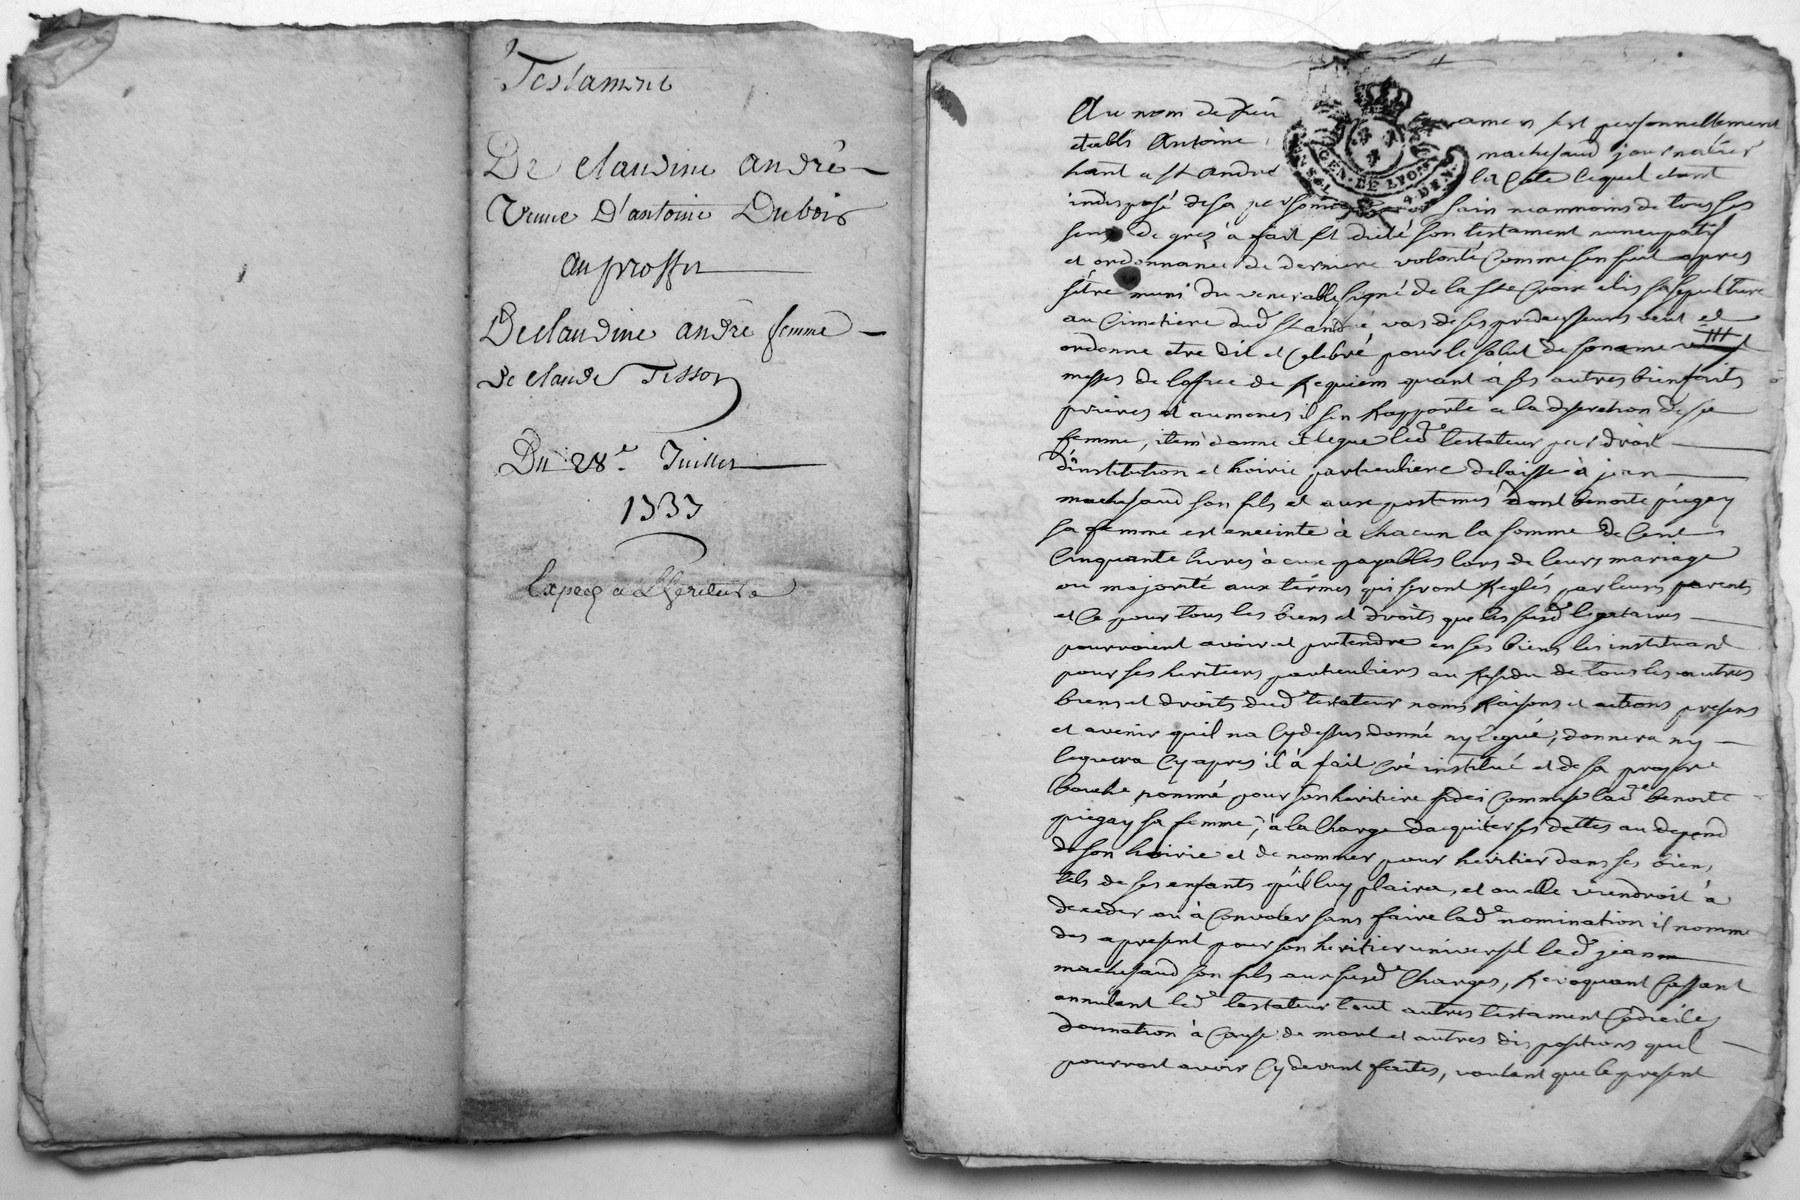 Testament
De claudine andré
Veuve D'antoine Dubois
au proffit
De claudine andre femme
de claude Tissot
Du 28e. Juillet
1737
Exped a L'heritiere
Au nom de dieu amen fut personnellement
etabli Antoine machesaud journalier
hant a st André la Cote lequel etant
indisposé de sa personne sain neammoins de tous ses
sens de grez a fait et dicté son testament nuncupatif
et ordonnance de derniere volonté Comme sen suit apres
sétre muni du venerable signé de la ste Croix elis sa sepulture
au Cimetiere dud st andré, vas de ses predecesseurs veut et
ordonne etre dit et Celebré pour le salut de son ame
messes de loffice de Requiem quant à ses autres bienfaits
prieres et aumones il sen Rapporte a la discretion de sa
femme, item donne et legue led testateur par droit
d'institution et hoirie particuliere delaisse à jean
machesaud son fils et aux postumes dont benoite piegay
sa femme est enceinte à chacun la somme de Cent
Cinquante livres à eux payables lors de leurs mariage
ou majorité aux térmes qui seront Reglés par leurs parents
et Ce pour tous les biens et droits que les susd legataires
pourroient avoir et pretendre en ses biens les instituant
pour ses heritiers particuliers au Residu de tous les autres
biens et droits dud testateur noms Raisons et actions presens
et avenir quil na Cy dessus donné ny legué, donnera ny
leguera Cy apres il à fait Créé institué et de sa propre
bouche nommé pour son heritiere fidei Commise lade benoite
piegay sa femme, à la Charge dacquiter ses dettes au depend
de son hoirie et de nommer pour heritier dans ses biens
tels de ses enfants qu'il luy plaira, et ou elle viendroit à
deceder ou à Convoler sans faire lade nomination il nomme
des apresent pour son heritier universel led jean
machesaud son fils aux susd Charges, Revoquant Cassant
annulant led testateur tout autres testament Codicile
donnation à Cause de mort et autres dispositions quil
pourroit avoir Cy devant faites, voulant que le present
GEN. DE LYON